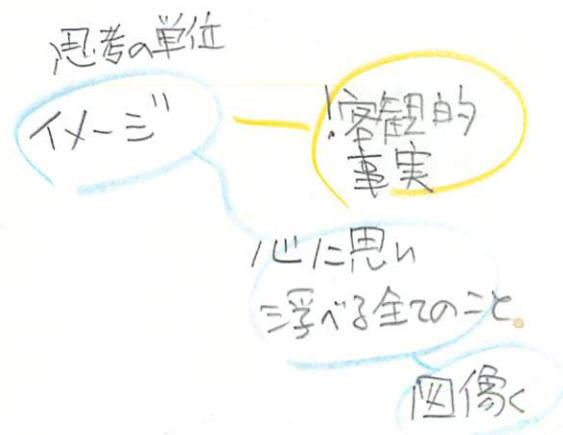 思考の単位
イメージ
!客観的
事実
心に思い
浮べる全てのこと。
図像く